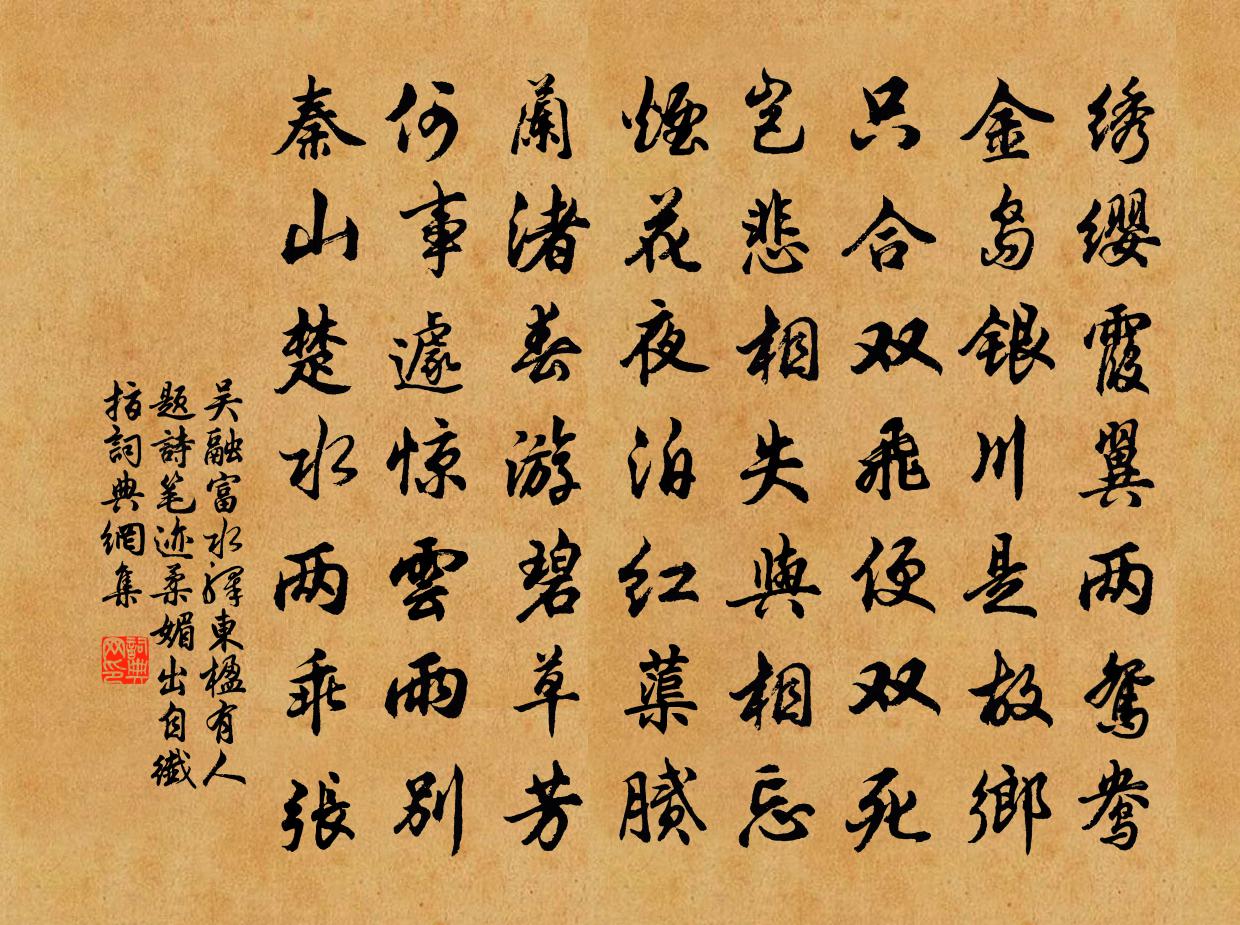 绣缨霞翼两鸳鸯
金岛银川是故鄉
只合双飛便双死
岂悲相失與相忘
煙花夜泊红蕖膩
蘭渚春游碧草芳
何事遽惊雲雨别
秦山楚水两乖張
吴融富水驛東楹有人
题詩笔迹柔媚出自纖
指詞典網集
詞典网印